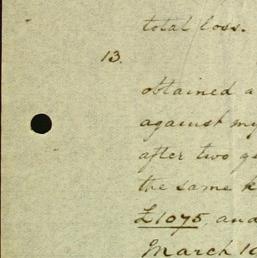 total loss.
13.
obtained a
against my
after two
the same k
£1075. and
March 19